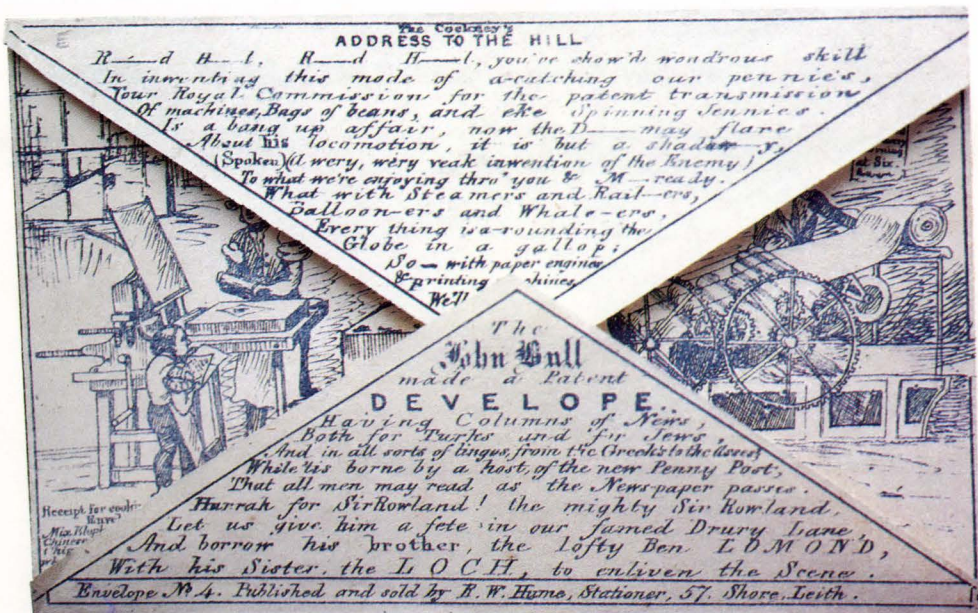 The Cockney's
ADDRESS TO THE HILL
R—d H—l, R—d H—l, you've show'd wondrous skill
In inwenting this mode of a-catching our pennies,
Your Royal Commission for the patent transmission
Of machines, Bags of beans, and eke Spinning Jennies.
Is a bang up affair, now the D— may flare
About his locomotion, it is but a shadow-y,
(Spoken) (A wery, wery veak inwention of the Enemy)
To what we're enjoying thro' you & M—ready.
What with Steamers and Rail-ers,
Balloon-ers and Whale-ers,
Every thing is a-rounding the
Globe in a gallop;
So — with paper engines
& printing
We'll
at Six
The
John Bull
made a Patent
DEVELOPE.
Having Columns of News,
Both for Turks and for Jews,
And in all sorts of lingos, from the Greeks to the Asses;
While 'tis borne by a host, of the new Penny Post,
That all men may read as the News-paper passes.
Hurrah for Sir Rowland! the mighty Sir Rowland,
Let us give him a fete in our famed Drury Lane,
And borrow his brother, the lofty Ben LOMOND,
With his Sister, the LOCH, to enliven the Scene.
Receipt for
Mix
Chinese
Envelope No 4. Published and sold by R. W. Hume, Stationer, 57. Shore, Leith.